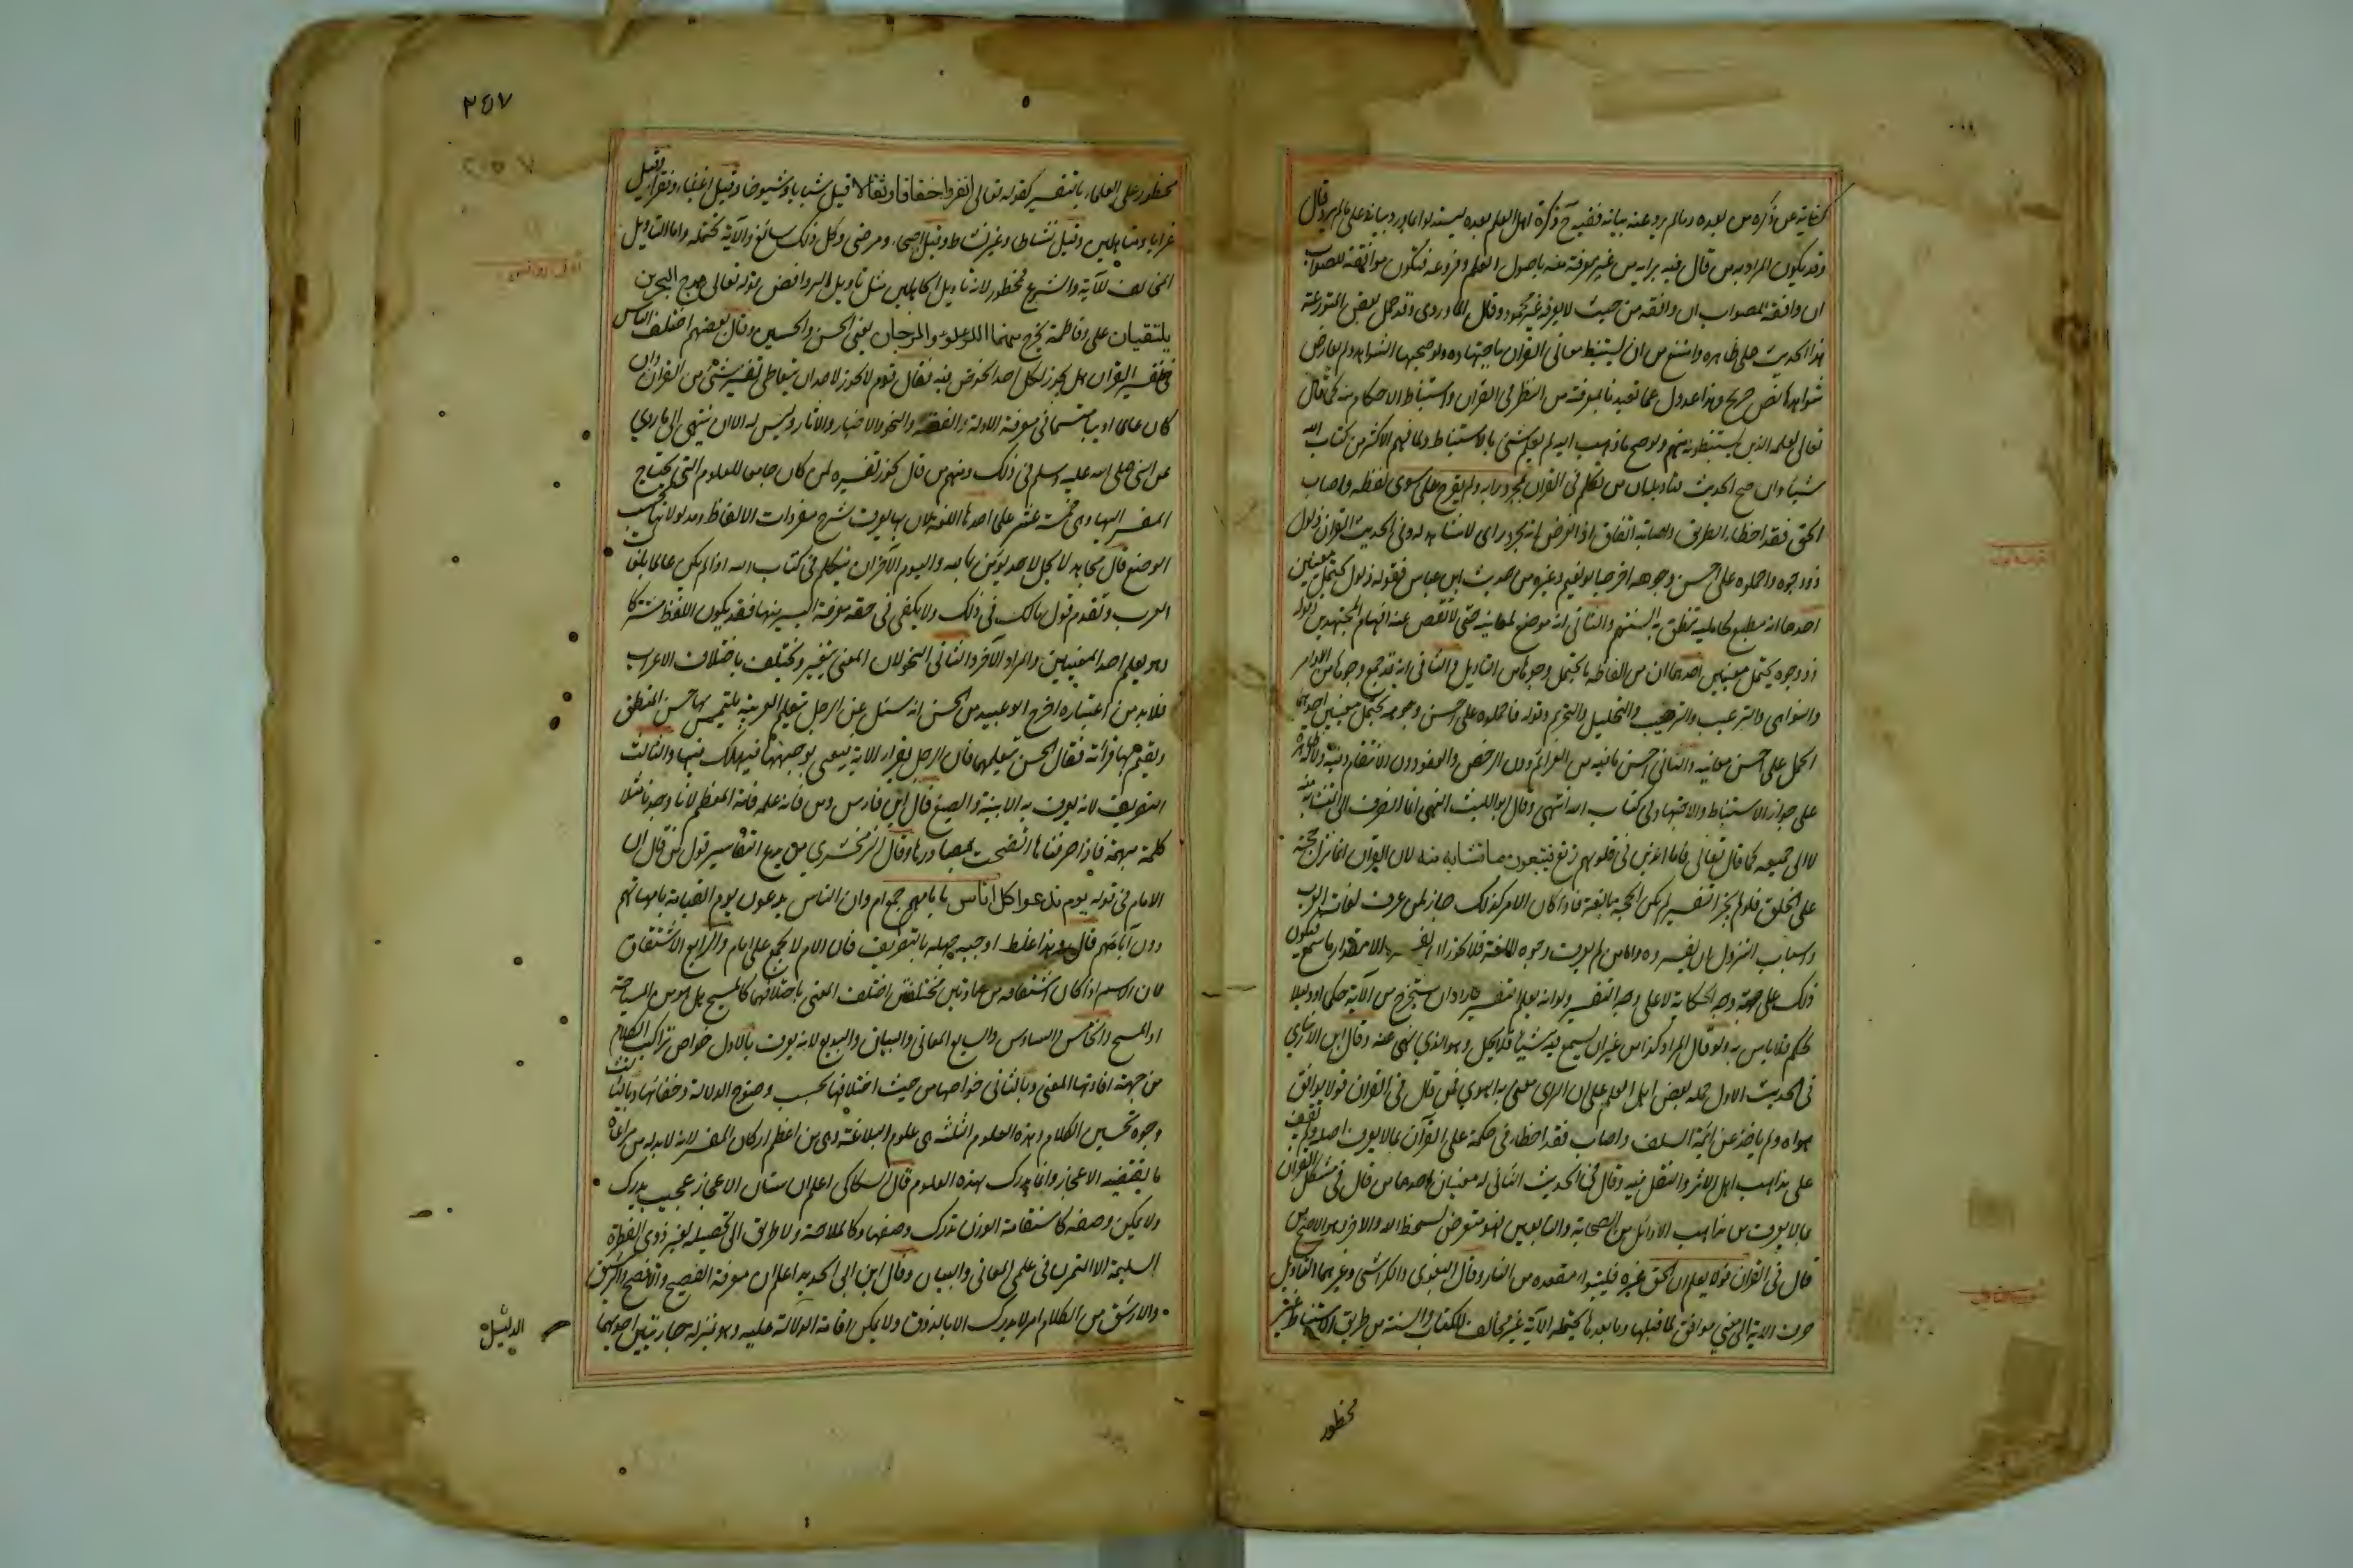 كفاية عن ذكره من بعده ومالم يرد عنه بيانه ففيه ح فكرة اهل العلم بعده ليستدلوا بما ورد بيانه على مالم يرد قال
وقد يكون المراد به من قال فيه برايه من غير معرفة منه باصول العلم وفروعه فتكون موافقته للصواب
ان وافقه للصواب ان وافقه من حيث لا يعرفه غير محمودة وقال الماوردى وقد حمل بعض المتورعة
هذا الحديث على ظاهره وامتنع من ان يستنبط معانى القران باجتهاده ولو صحبها الشواهد ولم يعارض
شواهدها نص صريح وهذا عدول عما تعبدنا بمعرفته من النظر فى القران واستنباط الاحكام منه كما قال
تعالى لعلمه الذين يستنبطونه منهم ولو صح ما ذهب اليه لم يعلم شئ بالاستنباط ولما فهم الاكثر من كتاب الله
شيئا وان صح الحديث فتاويله ان من تكلم فى القران بمجرد رايه ولم يعرج على سوى لفظه واصاب
الحق فقد اخطا الطريق واصابته اتفاق اذ الغرض انه مجرد راى لا شاهد له وفى الحديث القران ذلول
ذو وجوه فاحملوه على احسن وجوهه اخرجه ابو نعيم وغيره من حديث ابن عباس فقوله ذلول يحتمل معنيين
احدهما انه مطيع لحامليه تنطق به السنتهم والثانى انه موضح لمعانيه حتى لا تقصر عنه افهام المجتهدين وقوله
ذو وجوه يحتمل معنيين احدهما ان من الفاظه ما يحتمل وجوها من التاويل والثانى انه قد جمع وجوها من الاوامر
والنواهى والترغيب والترهيب والتحليل والتحريم وقوله فاحملوه على احسن وجوهه يحتمل معنيين احدهما
الحمل على احسن معانيه والثانى احسن ما فيه من العزائم دون الرخص والعفو دون الانتقام وفيه دلالة ظاهرة
على جواز الاستنباط والاجتهاد فى كتاب الله انتهى وقال ابو الليث النهى انما انصرف الى المتشابه منه
لا الى جميعه كما قال تعالى فاما الذين فى قلوبهم زيغ فيتبعون ما تشابه منه لان القران انما نزل حجة
على الخلق فلو لم يجز التفسير لم يكن الحجة بالغة فاذا كان الامر كذلك جاز لمن عرف لغات العرب
واسباب النزول ان يفسره واما من لم يعرف وجوه اللغة فلا يجوز ان يفسره الا بمقدار ما سمع فيكون
ذلك على وجه الحكاية لا على وجه التفسير ولو انه يعلم التفسير فاراد ان يستخرج من الآية حكما او دليلا
لحكم فلا باس به ولو قال المراد كذا من غير ان يسمع فيه شيئا فلا يحل وهو الذى نهى عنه وقال ابن الانبارى
فى الحديث الاول حمله بعض اهل العلم على ان الراى معنى به الهوى فمن قال فى القران قولا يوافق
هواه ولم ياخذ عن ائمة السلف واصاب فقد اخطا فى حكمه على القرآن بما لا يعرف اصله ولم يقف
على مذاهب اهل الاثر والنقل فيه وقال فى الحديث الثانى له معنيان احدهما من قال فى مشكل القران
بما لا يعرف من مذاهب الاوائل من الصحابة والتابعين فهو متعرض لسخط الله والآخر وهو الاصح من
قال فى القران قولا يعلم ان الحق غيره فليتبوا مقعده من النار وقال البغوى والكواشى وغيرهما التاويل
صرف الاية الى معنى موافق لما قبلها وما بعدها يحتمله الآية غير مخالف للكتاب والسنة من طريق الاستنباط غير
محظور
٣٥٧
محظور على العلماء بالتفسير كقوله تعالى انفروا خفافا وثقالا قيل شبابا وشيوخا وقيل اغنياء وفقراء وقيل
عزابا ومتاهلين وقيل نشاطا وغير نشاط وقيل اصحاء ومرضى وكل ذلك سائغ والآية تحتمله واما التاويل
المخالف للآية والشرع فمحظور لانه تاويل الجاهلين مثل تاويل الروافض قوله تعالى مرج البحرين
يلتقيان على وفاطمة يخرج منهما اللؤلؤ والمرجان يعنى الحسن والحسين وقال بعضهم اختلف الناس
فى تفسير القران هل يجوز لكل احد الخوض فيه فقال قوم لا يجوز لاحد ان يتعاطى تفسير شئ من القران وان
كان عالما اديبا متسعا فى معرفة الادلة والفقه والنحو والاخبار والاثار وليس له الا ان ينتهى الى ما روى
عن النبى صلى الله عليه وسلم فى ذلك ومنهم من قال يجوز تفسيره لمن كان جامعا للعلوم التى يحتاج
المفسر اليها وهى خمسة عشر علما احدها اللغة لان بها يعرف شرح مفردات الالفاظ ومدلولاتها بحسب
الوضع قال مجاهد لا يحل لاحد يؤمن بالله واليوم الآخر ان يتكلم فى كتاب الله اذا لم يكن عالما بلغات
العرب وتقدم قول مالك فى ذلك ولا يكفى فى حقه معرفة اليسير منها فقد يكون اللفظ مشتركا
وهو يعلم احد المعنيين والمراد الآخر الثانى النحو لان المعنى يتغير ويختلف باختلاف الاعراب
فلا بد من اعتباره اخرج ابو عبيد عن الحسن انه سئل عن الرجل يتعلم العربية يلتمس بها حسن المنطق
ويقيم بها قراته فقال الحسن تعلمها فان الرجل يقرا الآية فيعيى بوجهها فيهلك فيها والثالث
التصريف لانه يعرف به الابنية والصيغ قال ابن فارس ومن فاته علمه فاته المعظم لانا وجد مثلا
كلمة مبهمة فاذا صرفناها اتضحت بمصادرها وقال الزمخشرى من بدع التفاسير قول من قال ان
الامام فى قوله يوم ندعوا كل اناس بامامهم جمع ام وان الناس يدعون يوم القيامة بامهاتهم
دون آبائهم قال وهذا غلط اوجبه جهله بالتصريف فان الام لا يجمع على امام والرابع الاشتقاق
لان الاسم اذا كان اشتقاقه من مادتين مختلفتين اختلف المعنى باختلافهما كالمسيح هل هو من السياحة
او المسح والخامس والسادس والسابع المعانى والبيان والبديع لانه يعرف بالاول خواص تراكيب الكلام
من جهة افادتها المعنى وبالثانى خواصها من حيث اختلافها بحسب وضوح الدلالة وخفائها وبالثالث
وجوه تحسين الكلام وهذه العلوم الثلثة هى علوم البلاغة وهى من اعظم اركان المفسر لانه لا بد له من مراعاة
ما يقتضيه الاعجاز وانما يدرك بهذه العلوم قال السكاكى اعلم ان شان الاعجاز عجيب يدرك
ولا يمكن وصفه كاستقامة الوزن تدرك ولا يمكن وصفها وكالملاحة ولا طريق الى تحصيله لغير ذوى الفطرة
السليمة الا التمرن فى علمى المعانى والبيان وقال ابن ابى الحديد اعلم ان معرفة الفصيح والافصح والرشيق
والارشق من الكلام امر لا يدرك الا بالذوق ولا يمكن اقامة الدلالة عليه وهو بمنزلة جاريتين احدهما